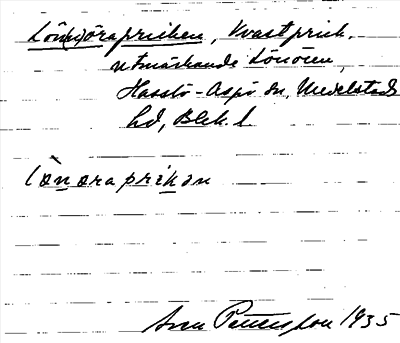 Lön(n)örapricken, Kvastprick,
utmärkande Lönören,
Hasslö-Aspö sn, Medelstads
hd, Blek. l
lònoraprikən
Sven Pettersson 1935